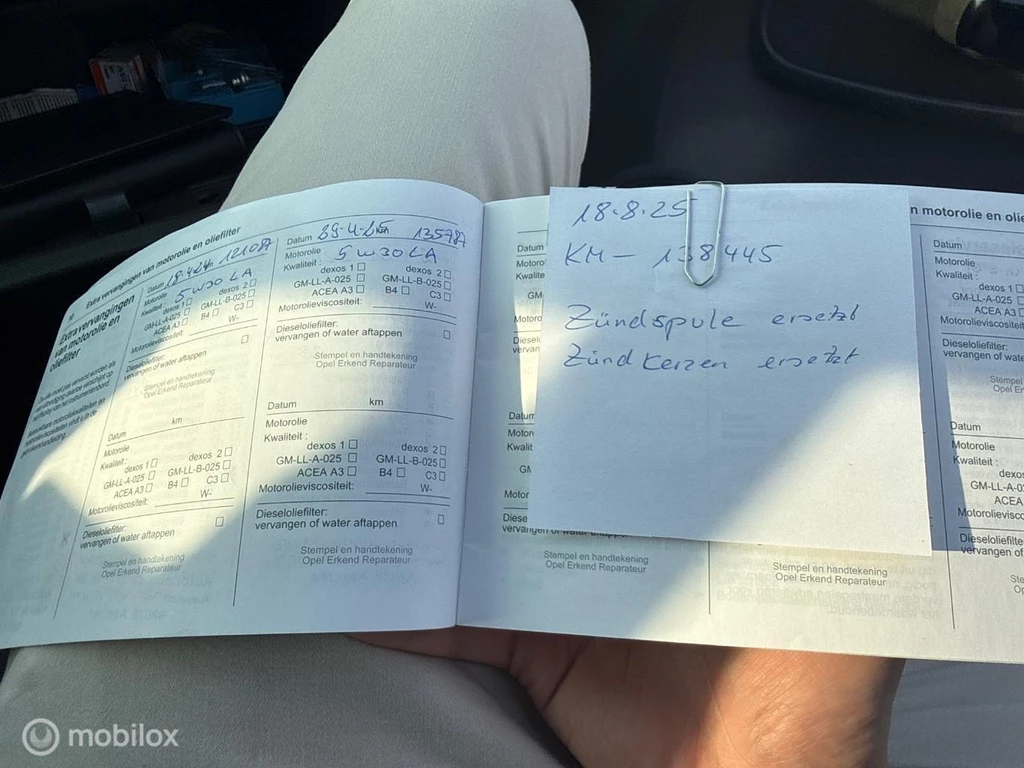 Extra vervangingen van motorolie en oliefilter
Extra vervangingen
van motorolie en
oliefilter
Datum 18-4-24 121087
Motorolie 5W30 LA
Kwaliteit: dexos 1 dexos 2
GM-LL-A-025 GM-LL-B-025
ACEA A3 B4 C3
Motorolieviscositeit: W-
Dieseloliefilter:
vervangen of water aftappen
Stempel en handtekening
Opel Erkend Reparateur
Datum km
Motorolie
Kwaliteit: dexos 1 dexos 2
GM-LL-A-025 GM-LL-B-025
ACEA A3 B4 C3
Motorolieviscositeit: W-
Dieseloliefilter:
vervangen of water aftappen
Stempel en handtekening
Opel Erkend Reparateur
Datum 29-4-25 km 135787
Motorolie 5W30 LA
Kwaliteit: dexos 1 dexos 2
GM-LL-A-025 GM-LL-B-025
ACEA A3 B4 C3
Motorolieviscositeit: W-
Dieseloliefilter:
vervangen of water aftappen
Stempel en handtekening
Opel Erkend Reparateur
Datum km
Motorolie
Kwaliteit: dexos 1 dexos 2
GM-LL-A-025 GM-LL-B-025
ACEA A3 B4 C3
Motorolieviscositeit: W-
Dieseloliefilter:
vervangen of water aftappen
Stempel en handtekening
Opel Erkend Reparateur
18.8.25
KM - 138445
Zündspule ersetzt
Zündkerzen ersetzt
Stempel en handtekening
Opel Erkend Reparateur
Stempel en handtekening
Opel Erkend Reparateur
n motorolie en olie
Datum
Motorolie
Kwaliteit: dexos 1
GM-LL-A-02
ACEA A3
Motorolieviscosite
Dieseloliefilter:
vervangen of wate
Stempel
Opel E
Datum
Motorolie
Kwaliteit: dexos
GM-LL-A-0
ACEA A
Motorolieviscos
Dieseloliefilter:
vervangen of w
mobilox